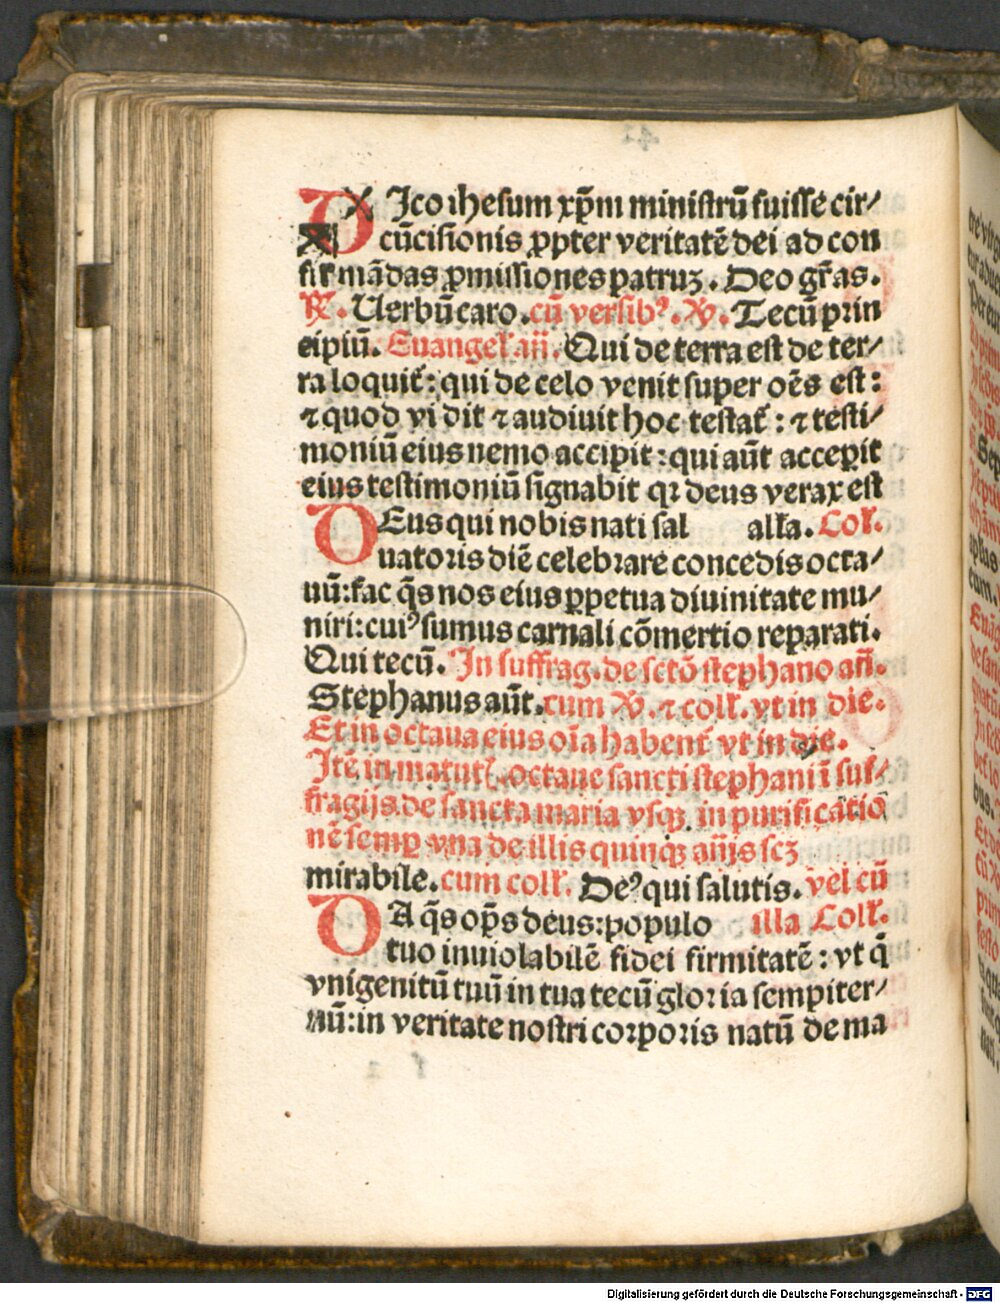 DJco ihesum xp̄m ministrū fuisse cir⸗
cūcisionis ꝓpter veritatē dei ad con
firmādas ꝓmissiones patruꝫ. Deo gr̄as.
℞. Uerbū caro. cū versibꝰ. ℣. Tecū prin
cipiū. Euangeł. añ. Qui de terra est de ter⸗
ra loquit᷑: qui de celo venit super oēs est:
⁊ quod vidit ⁊ audiuit hoc testat᷑: ⁊ testi⸗
moniū eius nemo accipit: qui aūt acceperit
eius testimoniū signabit qꝛ deus verax est
DEus qui nobis nati sal alła. Coł.
uatoris diē celebrare concedis octa⸗
uū: fac q̄s nos eius ꝑpetua diuinitate mu⸗
niri: cuiꝰ sumus carnali cōmertio reparati.
Qui tecū. Jn suffrag. de sctō stephano añ.
Stephanus aūt. cum ℣. ⁊ coll. vt in die.
Et in octaua eius oīa habent᷑ vt in die.
Jtē in matut᷑. octaue sancti stephani ī suf⸗
fragijs de sancta maria vsqꝫ in purificatio
nē semꝑ vna de illis quinqꝫ añis scꝫ
mirabile. cum coll. Deꝰ qui salutis. vel cū
DA q̄s op̄s deus: populo illa Coll.
tuo inuiolabilē fidei firmitatē: vt q̄
vnigenitū tuū in tua tecū gloria sempiter⸗
nū: in veritate nostri corporis natū de ma
Digitalisierung gefördert durch die Deutsche Forschungsgemeinschaft - DFG